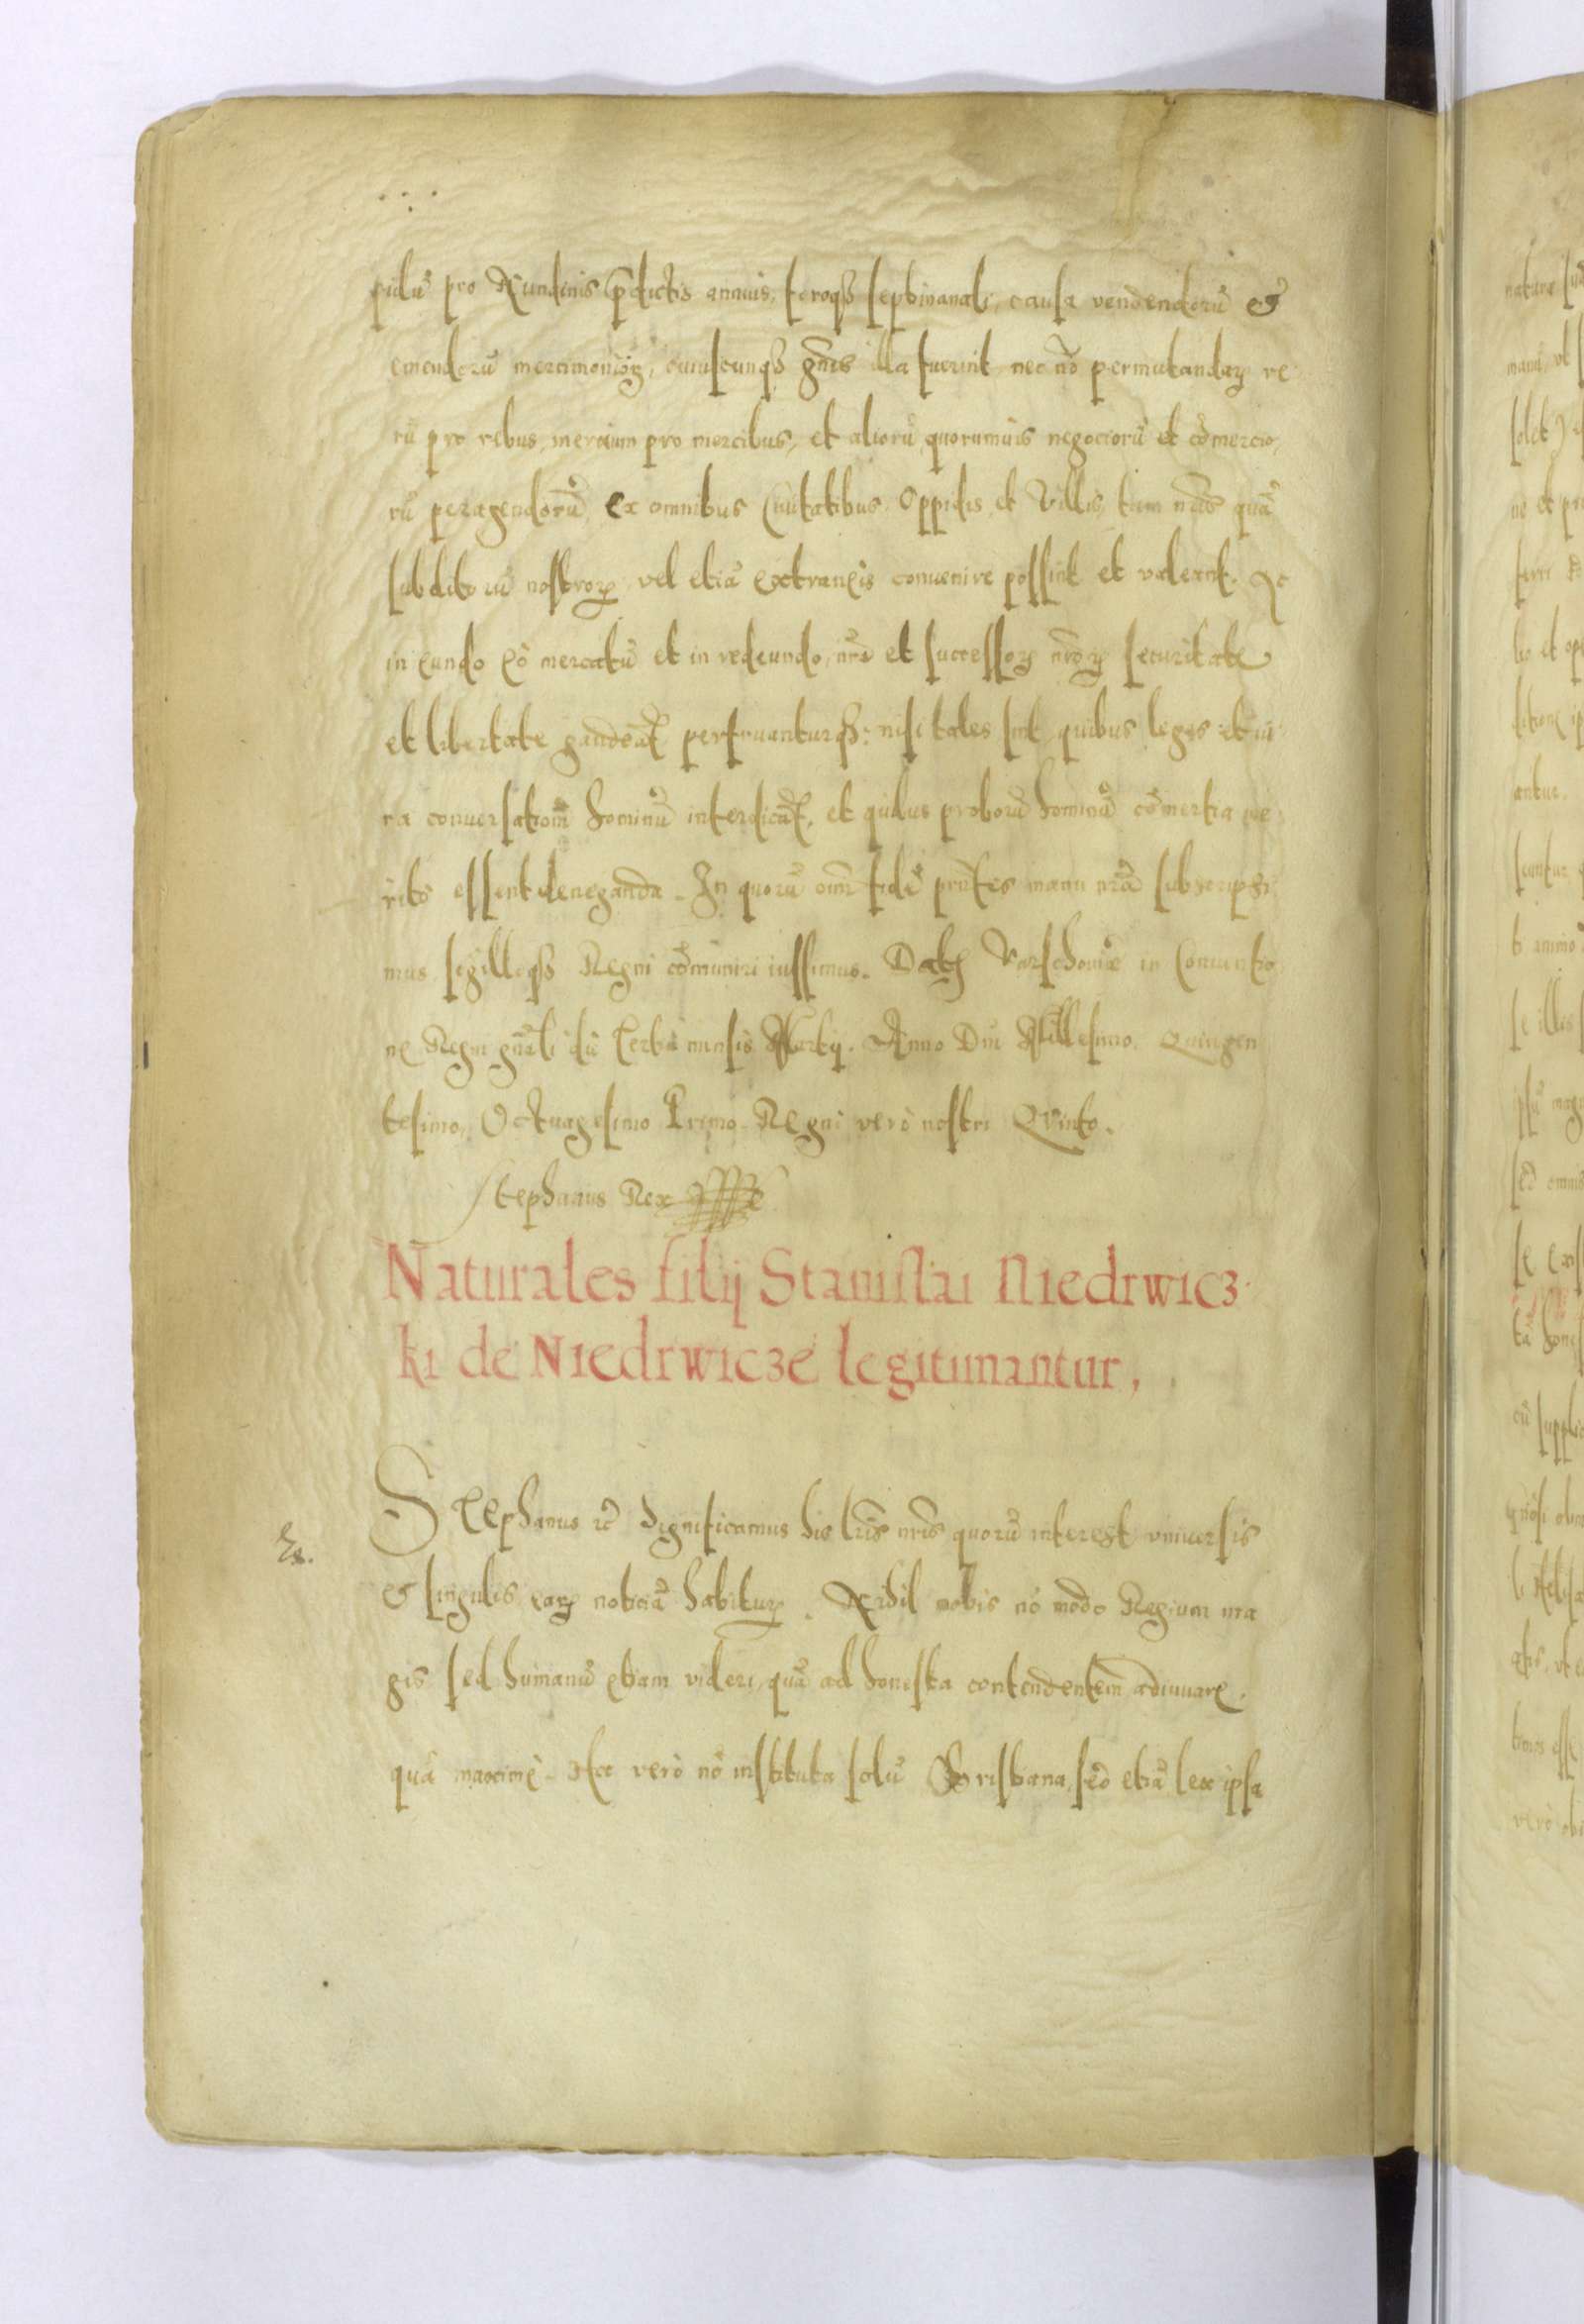 pidũ pro Nundinis p̃dictis annuis, foroqꝫ septimanali, causa vendendorũ &
emendorũ mercimoniorꝝ, cuiuscunqꝫ gñis illa fuerint nec nõ permutandarꝝ re
rũ pro rebus, mercium pro mercibus, et aliorũ quorumuis negociorũ et cõmercio,
rũ peragendorũ ex omnibus Ciuitatibus Oppidis et Villis, tam nr̃is quã
subditorũ nostrorꝝ vel etiã extraneis conuenire possint et valeant. Ac
in eundo eò mercatũ et in redeundo, nr̃a et successorꝝ nr̃orꝝ securitate
et libertate gaudeãt perfruanturqꝫ: nisi tales sint quibus leges et iu
ra conuersationẽ hominũ interdicũt, et quibus proborũ hominũ cõmertia me
ritò essent deneganda. In quorũ om̃ fidẽ pñtes manu nr̃a subscripsi
mus sigilloqꝫ Regni cõmuniri iussimus. Datꝫ Varschouiæ in Conuentio
ne Regni gñali die tertia mensis Martij. Anno Dñi Millesimo Quingen
tesimo, Octuagesimo Primo. Regni verò nostri Qvinto.
Stephanus Rex
Naturales filij Stanislai Niedrwicz
ki de Niedrwicze legitimantur,
Stephanus ꝛc̃ Significamus his lr̃is nr̃is quorũ interest vniuersis
& singulis earꝝ noticiã habiturꝝ. Nihil nobis nõ modo Regium ma
gis sed humanũ etiam videri, quã ad honesta contendentem adiuuare
quã maximè. Hæc verò nõ instituta solũ Christiana, sed etiã lex ipsa